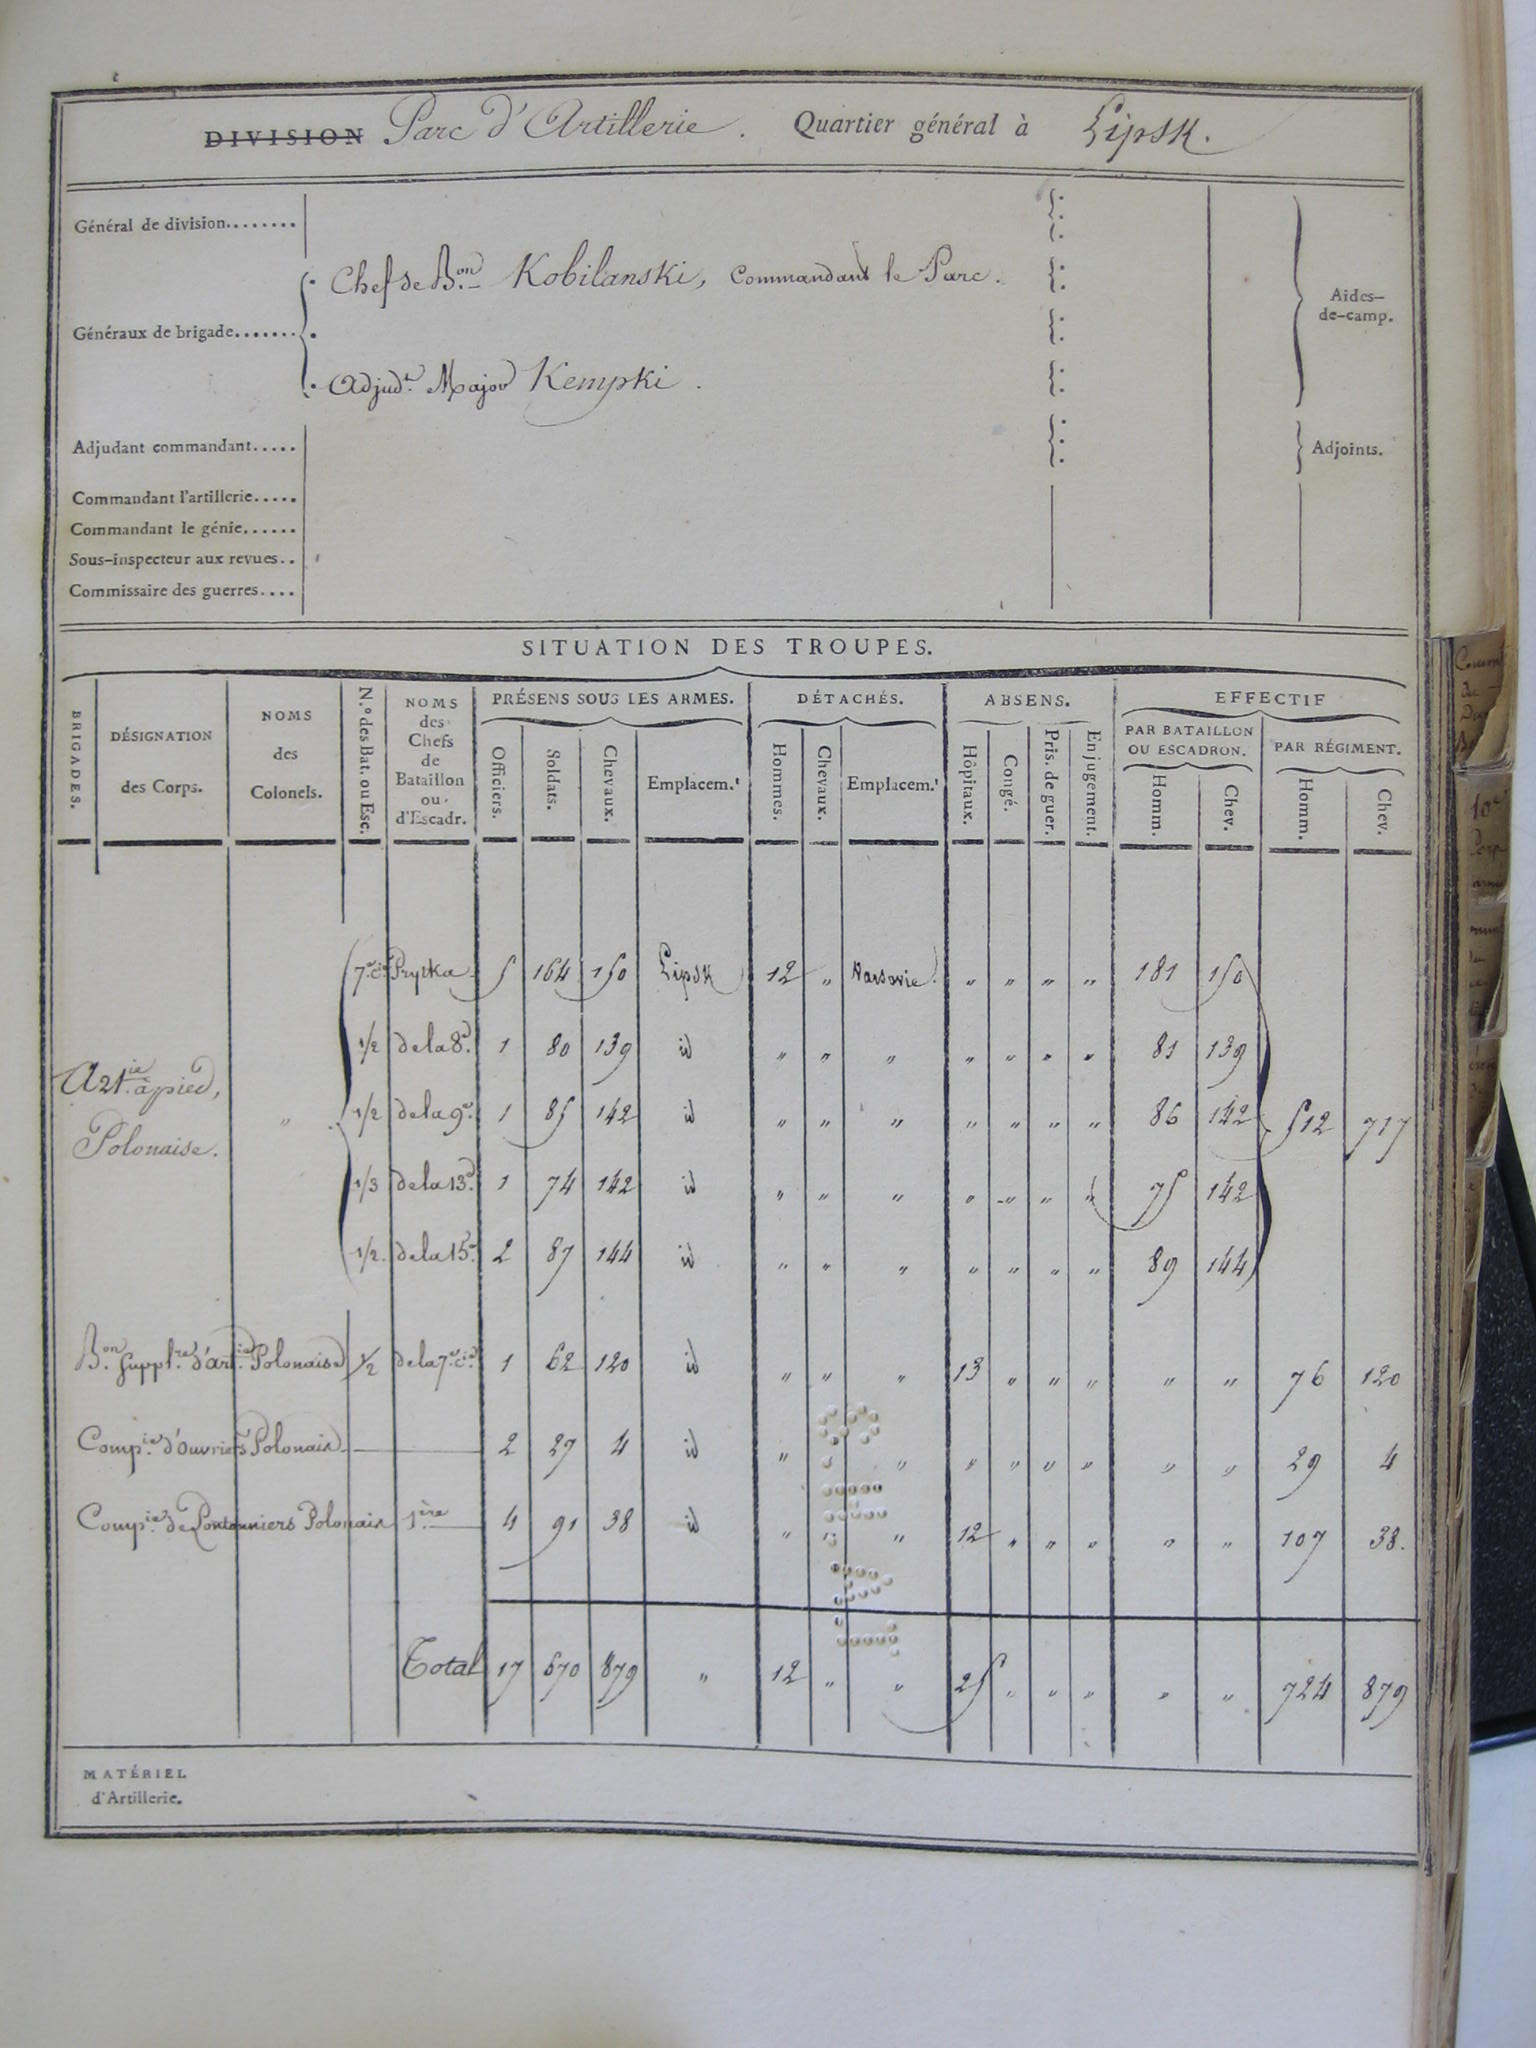 DIVISION Parc d'Artillerie. Quartier général à Lipsk.
Général de division........
Chef de B.on Kobilanski, Commandant le Parc.
Généraux de brigade.......
Aides-
de-camp.
Adjud.t Major Kempki.
Adjudant commandant..... Adjoints.
Commandant l'artillerie.....
Commandant le génie......
Sous-inspecteur aux revues..
Commissaire des guerres....
SITUATION DES TROUPES.
BRIGADES.
DÉSIGNATION
des Corps.
NOMS
des
Colonels.
N.º des Bat. ou Esc.
NOMS
des
Chefs
de
Bataillon
ou
d'Escadr.
PRÉSENS SOUS LES ARMES.
Officiers. Soldats. Chevaux. Emplacem.t
DÉTACHÉS.
Hommes. Chevaux. Emplacem.t
ABSENS.
Hôpitaux. Congé. Pris. de guer. En jugement.
EFFECTIF
PAR BATAILLON
OU ESCADRON.
Homm. Chev.
PAR RÉGIMENT.
Homm. Chev.
7.e C.ie 5 164 150 Lipsk 12 " Varsovie. " " " " 181 150
1/2 de la 8.e 1 80 139 id " " " " " " " 81 139
Art.ie à pied,
Polonaise. " 1/2 de la 9.e 1 85 142 id " " " " " " " 86 142 512 717
1/3 de la 13.e 1 74 142 id " " " " " " " 75 142
1/2. de la 15.e 2 87 144 id " " " " " " " 89 144
B.on Suppl.re d'art.ie Polonaise 1/2 de la 7.e C.ie 1 62 120 id " " " 13 " " " " " 76 120
Comp.ie d'ouvriers Polonais 2 27 4 id " " " " " " " " 29 4
Comp.ie de Pontonniers Polonais 1.ère 4 91 38 id " " " 12 " " " " " 107 38.
Total 17 670 879 " 12 " " 25 " " " " " 724 879
MATÉRIEL
d'Artillerie.